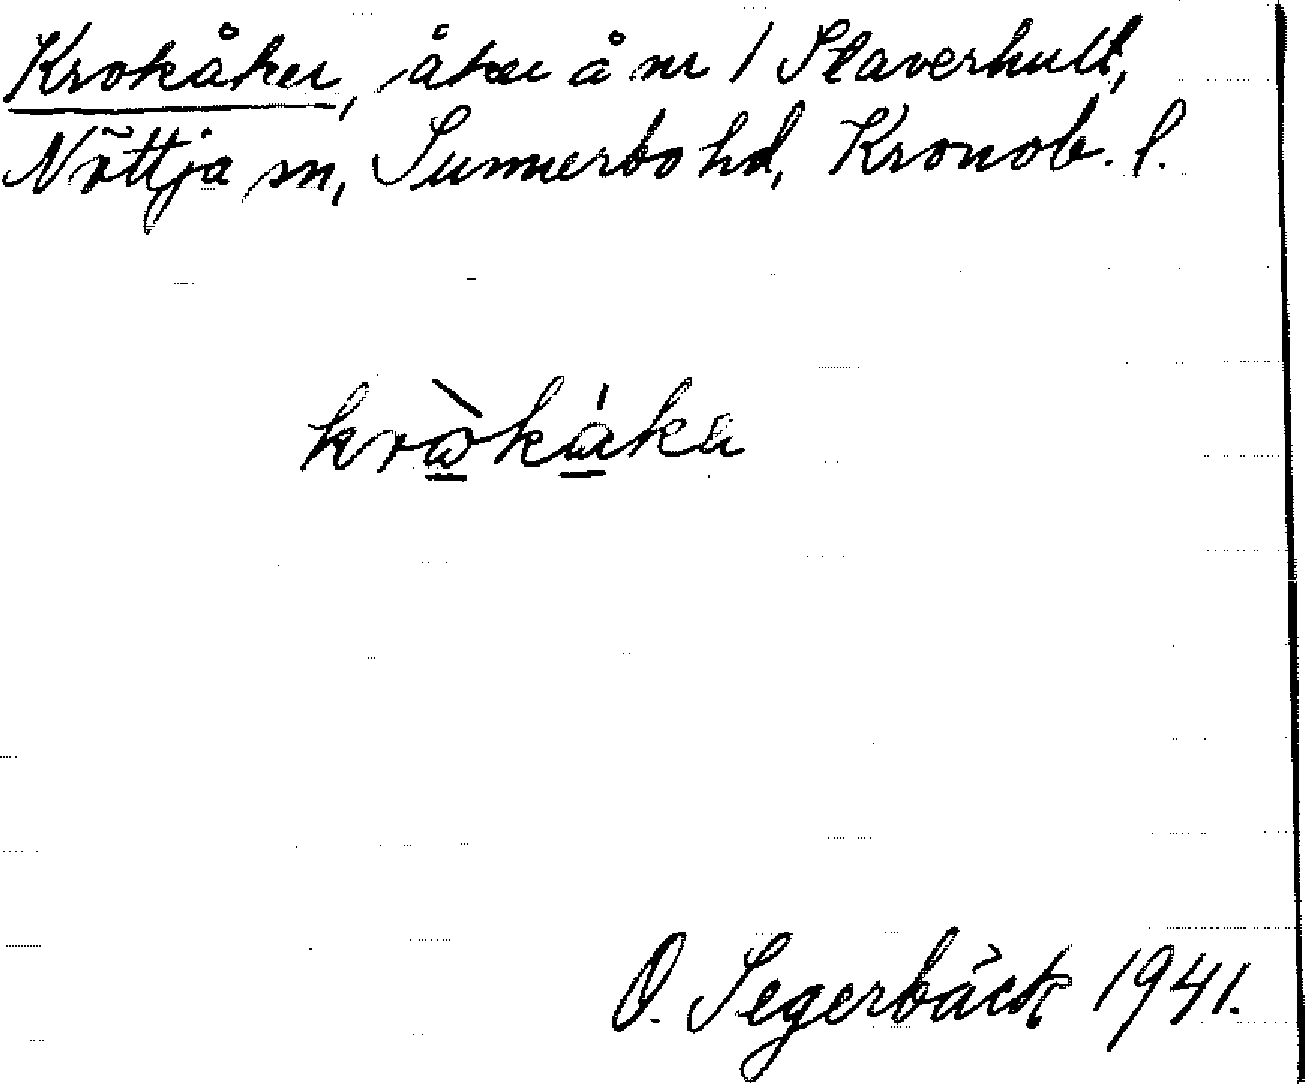 Krokåker, åker å nr 1 Slaverhult,
Nöttja sn, Sunnerbo hd, Kronob. l.
kròkáka
O. Segerbäck 1941.